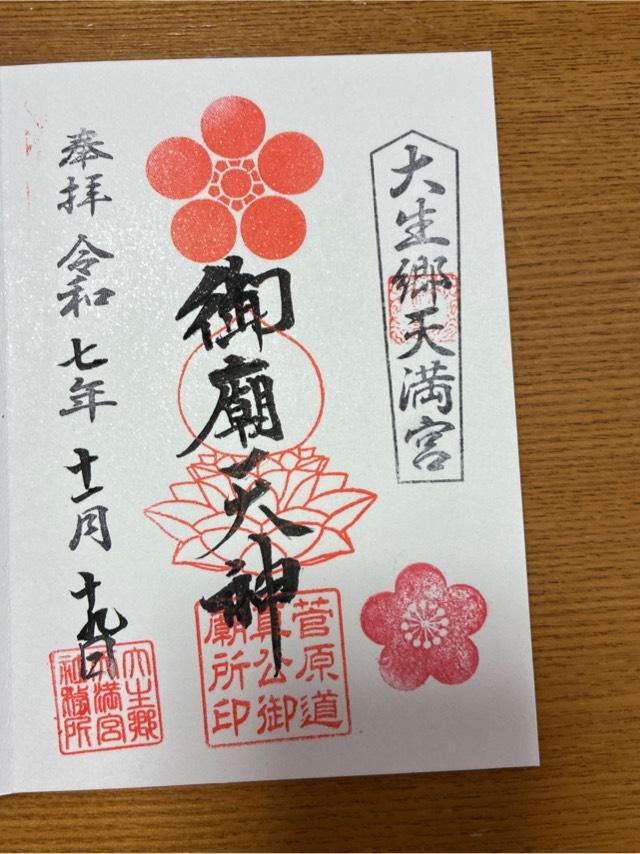 大生郷天満宮
御廟天神
菅原道
真公御
廟所印
奉拝 令和七年十一月十九日
大生郷
天満宮
社務所